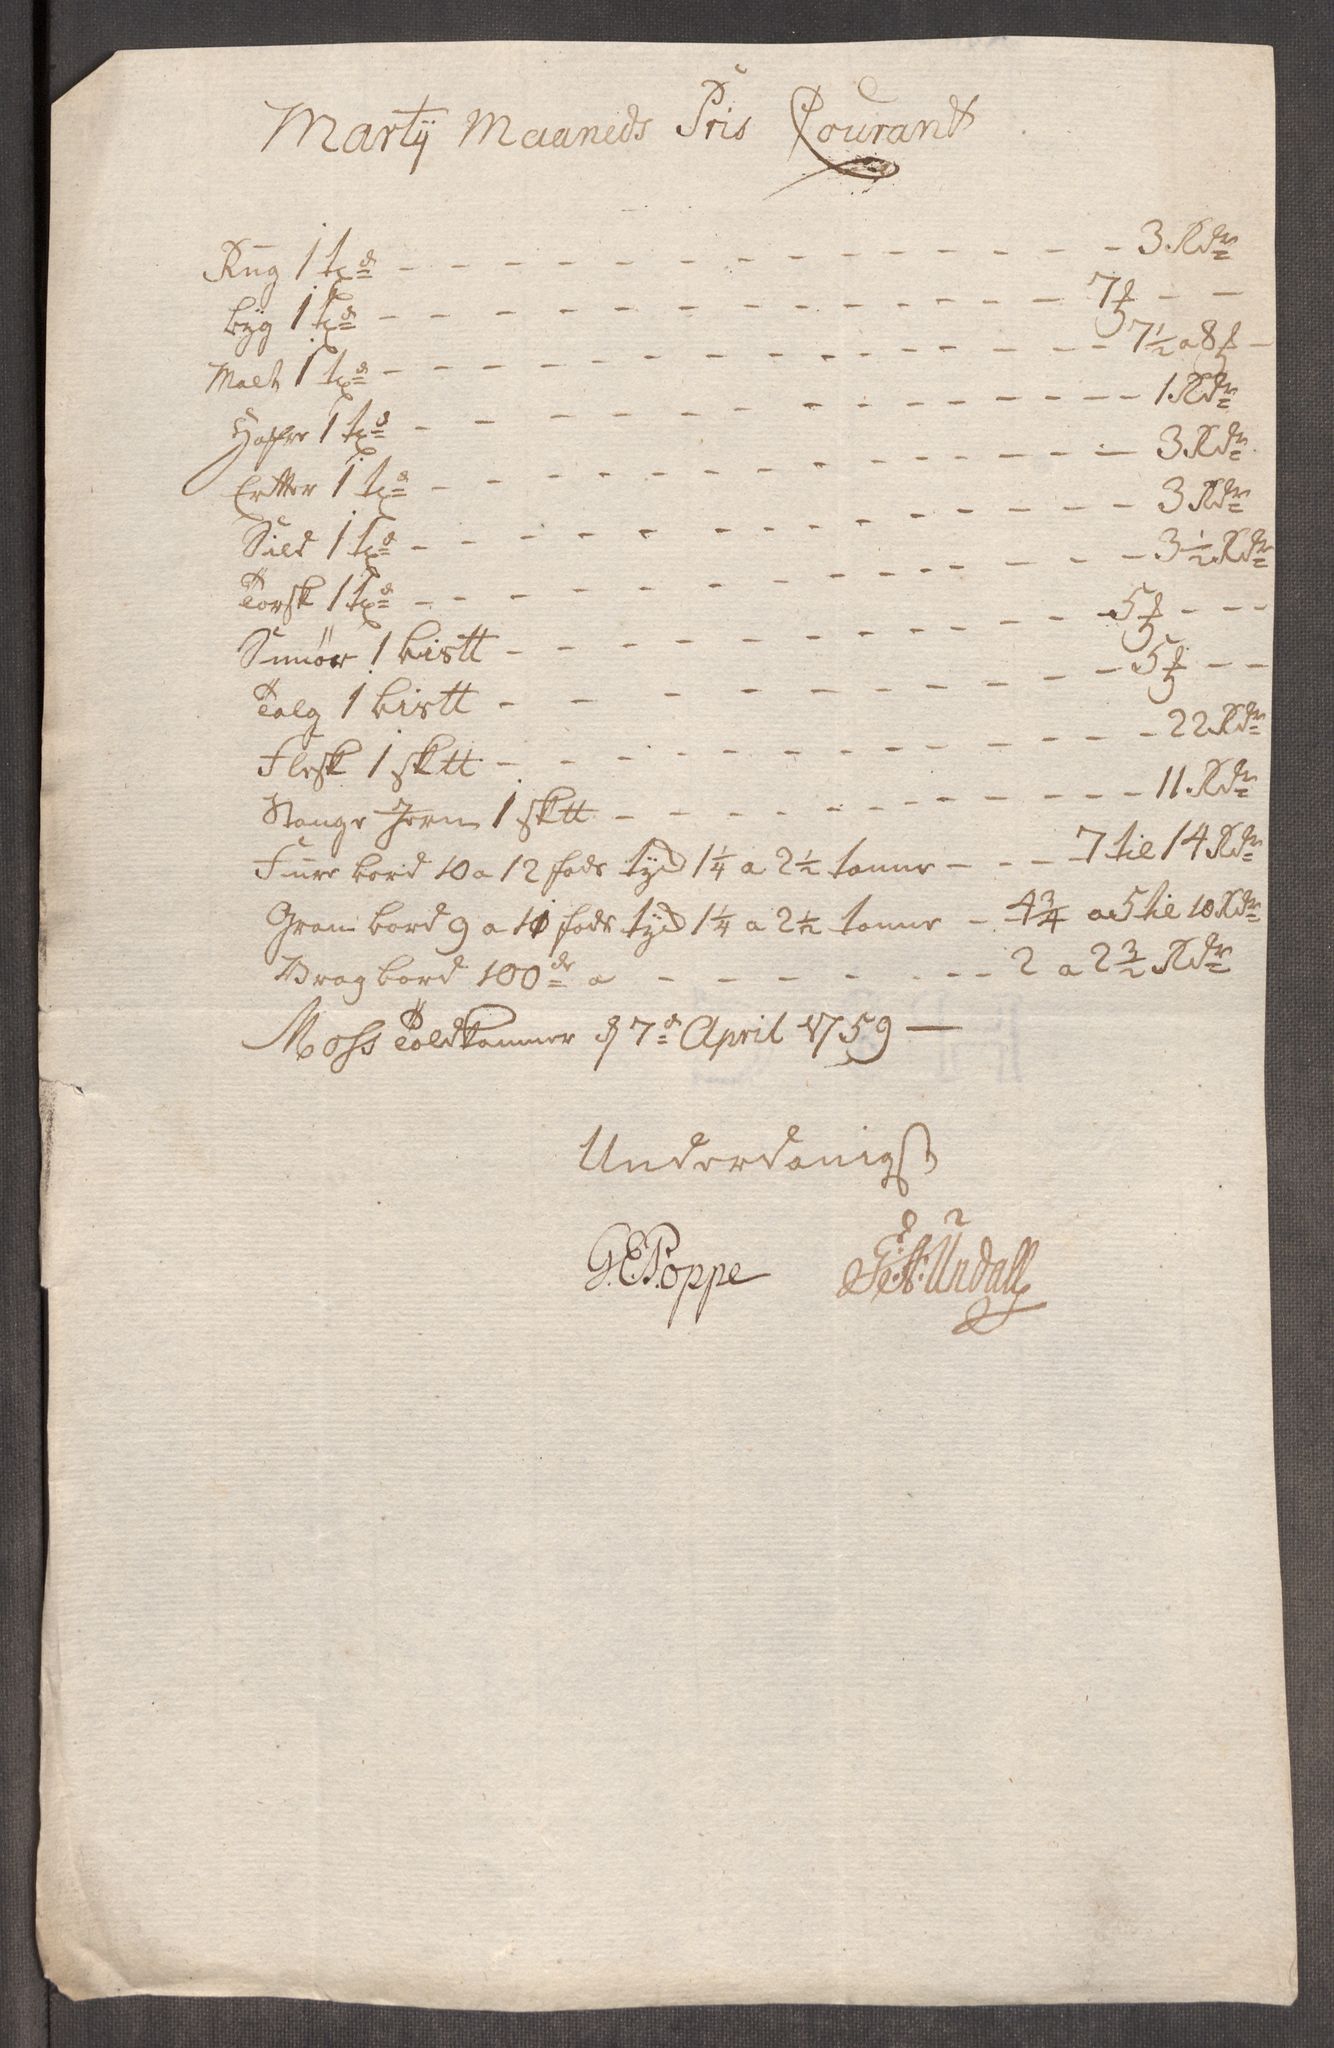 Martÿ Maaneds Pris Courant
Rug 1 tøde - - - 3 Rdr
Byg 1 tøde - - - 7 ß - -
Malt 1 tøde - - - 7½ a 8 ß -
Hafre 1 tøde - - - 1 Rdr
Ertter 1 tøde - - - 3 Rdr
Sild 1 tøde - - - 3 Rdr
Torsk 1 tøde - - - 3½ Rdr
Smør 1 bistt - - - 5 ß - - -
Talg 1 bistt - - - 5 ß - -
Flesk 1 sktt - - - 22 Rdr
Stange Jern 1 sktt - - - 11 Rdr
Fure bord 10 a 12 fods tyk 1¼ a 2½ tomme - - - 7 til 14 Rdr
Gran bord 9 a 10 fods tyk 1¼ a 2½ tomme - 4¾ a 5 til 10 Rdr
Vrag bord 100de a - - - 2 a 2 3/2 Rdr
Moss Toldkammer d 7de April 1759 —
Underdanigst
G. E. Poppe Undall